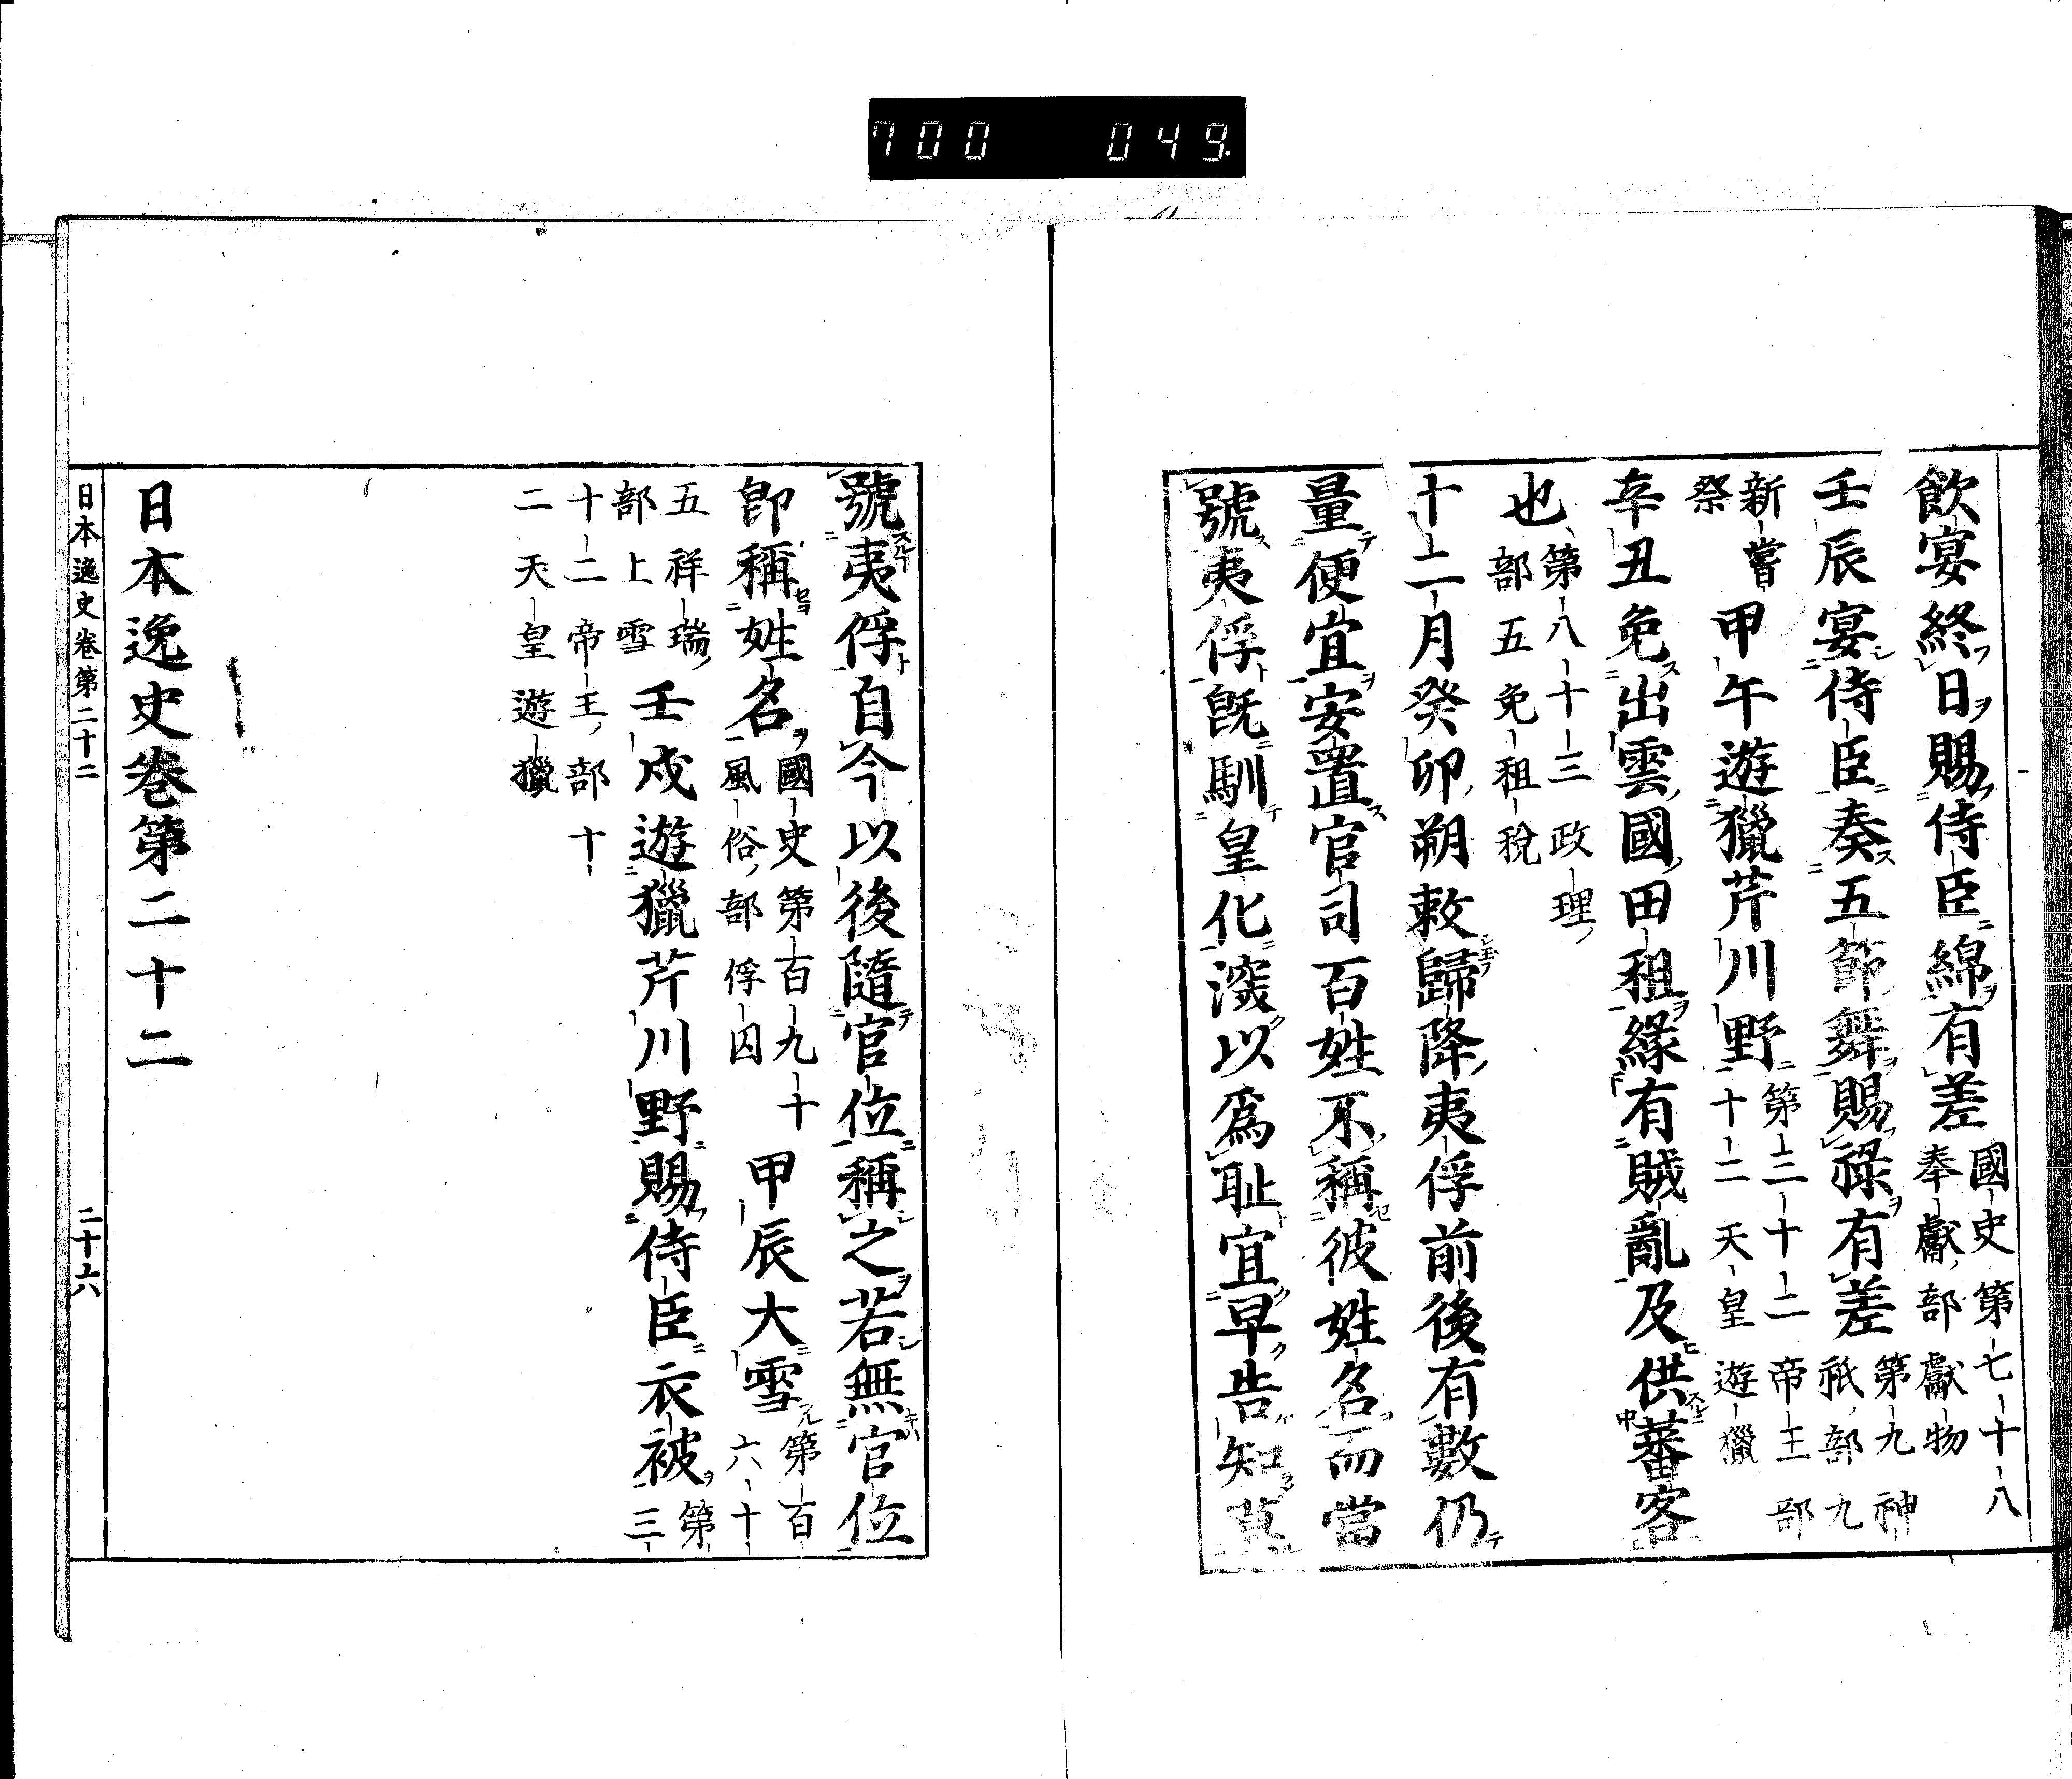 700 049
飲宴終日賜侍臣綿有差國史第七十八奉獻部獻物
壬辰宴侍臣奏五節舞賜祿有差第九神祇部九
新嘗祭甲午遊獵芹川野第三十二帝王部十二天皇遊獵
辛丑免出雲國田租緣有賊亂及供蕃客
也第八十三政理部五免租稅
十二月癸卯朔敕歸降夷俘前後有數仍
量便宜安置官司百姓不稱彼姓名而當
號夷俘旣馴皇化深以爲耻宜早告知莫
號夷俘自今以後隨官位稱之若無官位
卽稱姓名國史第百九十風俗部俘囚甲辰大雪第百六十
五祥瑞部上雪壬戌遊獵芹川野賜侍臣衣被第三
十二帝王部十二天皇遊獵
日本逸史卷第二十二
日本逸史卷第二十二 二十六